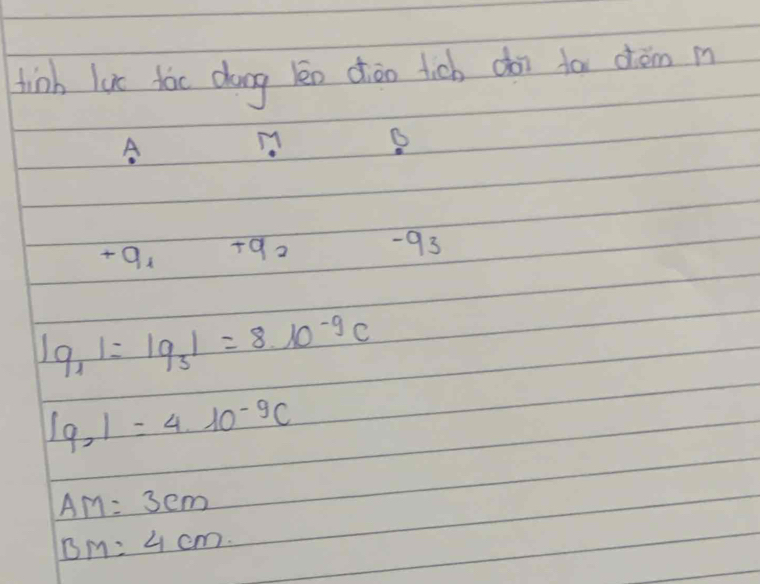 tính lực tác dụng lên điện tích đặt tại điểm M
A M B
+q₁ +q₂ -q₃
|q₁| = |q₃| = 8.10⁻⁹C
|q₂| = 4.10⁻⁹C
AM = 3cm
BM = 4cm.